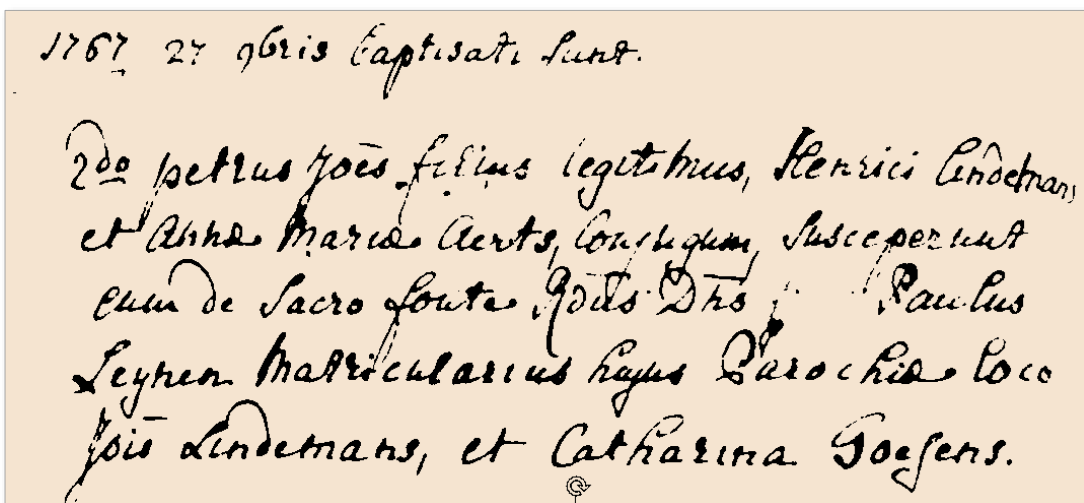 1767 27 9bris baptisati sunt.
2do petrus Joēs filius legitimus, Henrici lindemans
et Annæ Mariæ Aerts, Conjugum, susceperunt
eum de sacro fonte Rdūs Dn̄s Paulus
Leynen Matricularius hujus Parochiæ loco
Jois Lindemans, et Catharina Goesens.